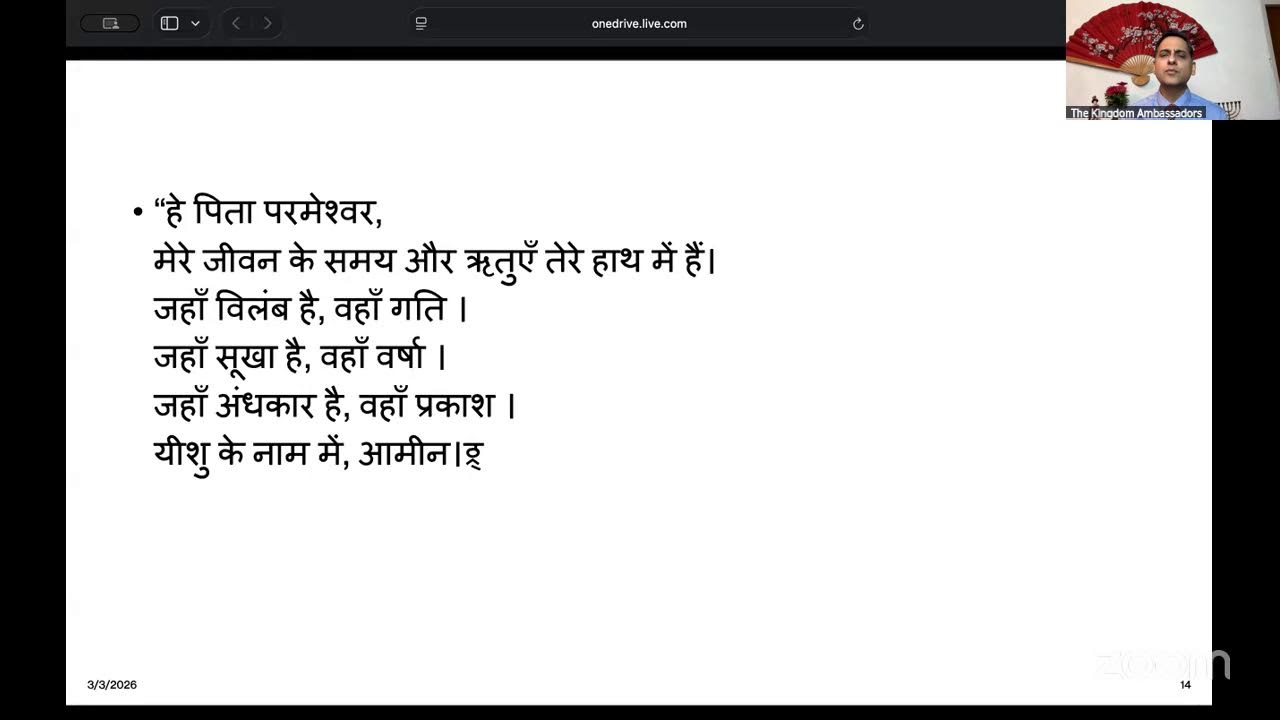 onedrive.live.com
The Kingdom Ambassadors
• “हे पिता परमेश्वर,
मेरे जीवन के समय और ऋतुएँ तेरे हाथ में हैं।
जहाँ विलंब है, वहाँ गति ।
जहाँ सूखा है, वहाँ वर्षा ।
जहाँ अंधकार है, वहाँ प्रकाश ।
यीशु के नाम में, आमीन।
zoom
3/3/2026
14